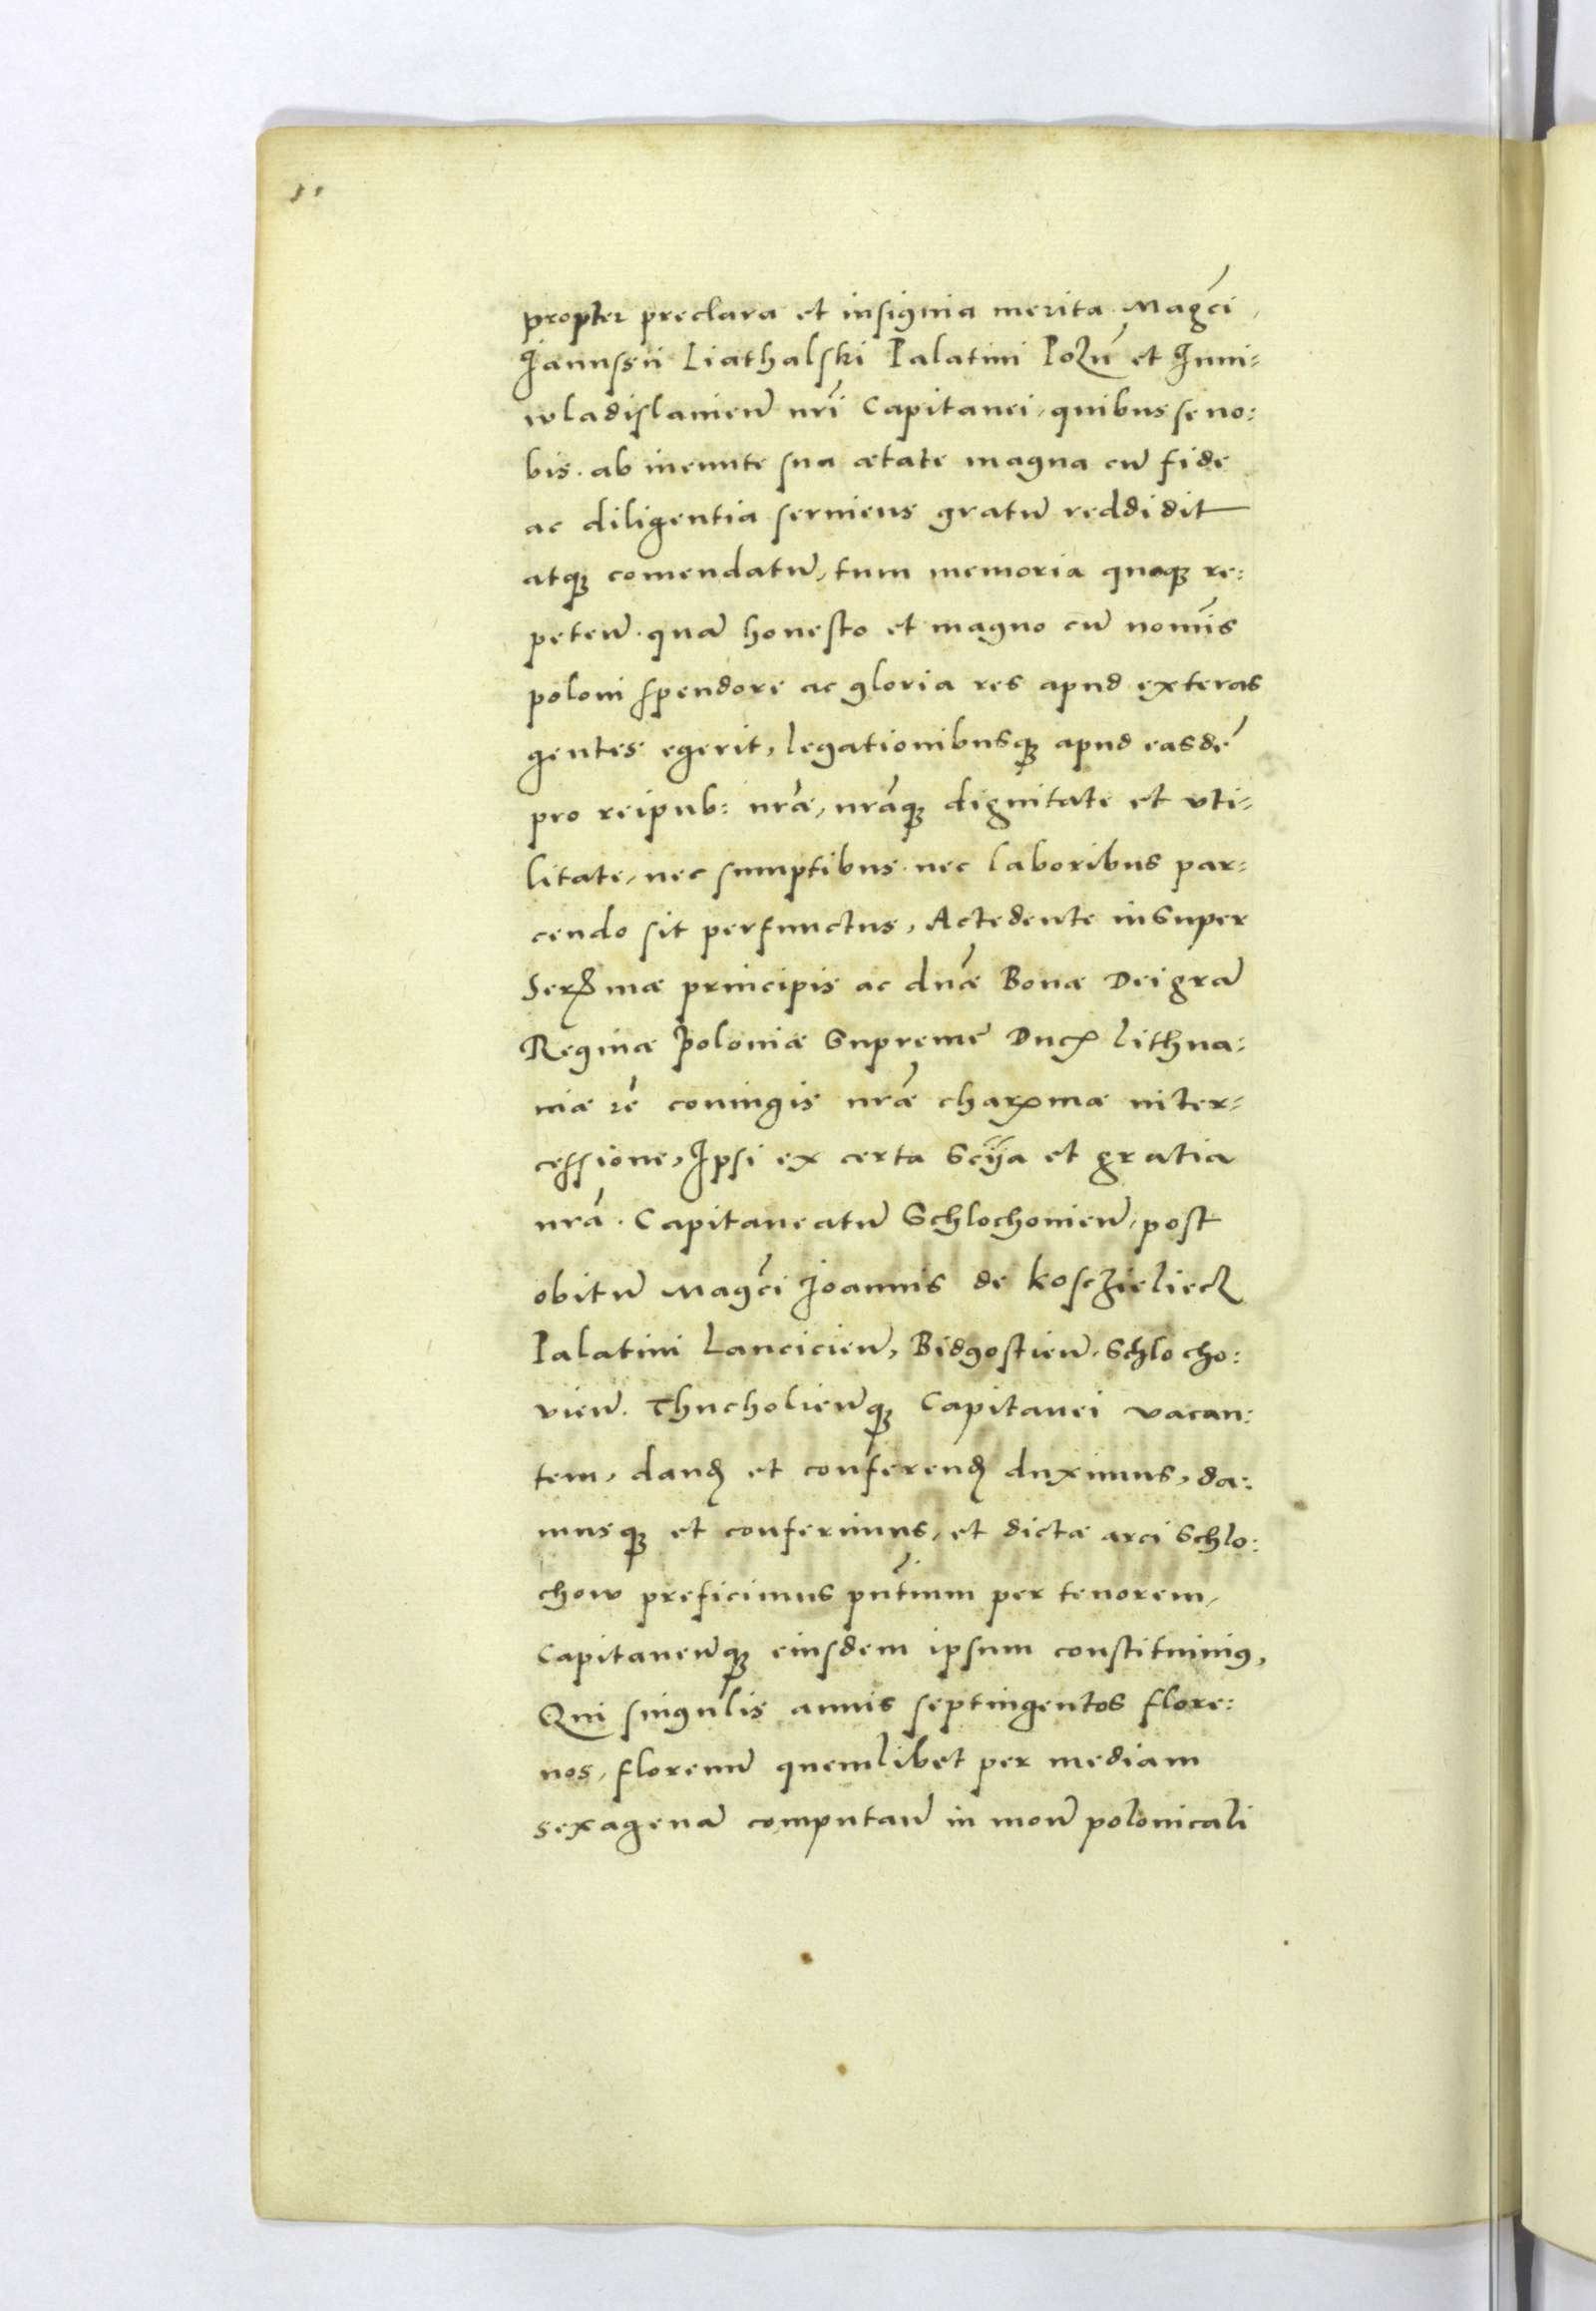 11
propter preclara et insignia merita Magci
Janussii Liathalski Palatini Pozn et Juni-
wladislauien nri Capitanei, quibus se no:
bis. ab ineunte sua ætate magna cu fide
ac diligentia seruiens gratu reddidit
atq3 comendatu, tum memoria quoq3 re:
peten. qua honesto et magno cu nomis
poloni spendore ac gloria res apud exteras
gentes egerit, legationibusq3 apud easde
pro reipub: nræ, nraq3 dignitate et vti-
litate, nec sumptibus. nec laboribus par:
cendo sit perfunctus, Actedente insuper
Serꝫmæ principis ac dnæ Bonæ Dei gra
Reginæ Poloniæ Supreme Duc Lithua:
niæ ꝛc coniugis nræ charꝫmæ inter-
cessione, Ipsi ex certa Scïa et gratia
nra. Capitaneatu Schlochouien, post
obitu Magci Joannis de Kosczieliecz
Palatini Lancicien, Bidgostien. Schlocho:
vien. Thucholienq3 Capitanei vacan:
tem, dand et conferend duximus, da:
musq3 et conferimus, et dictæ arci Schlo:
chow preficimus pntium per tenorem,
Capitaneuq3 eiusdem ipsum constituimus,
Qui singulis annis septingentos flore:
nos, florenu quemlibet per mediam
sexagena computan in mon polonicali